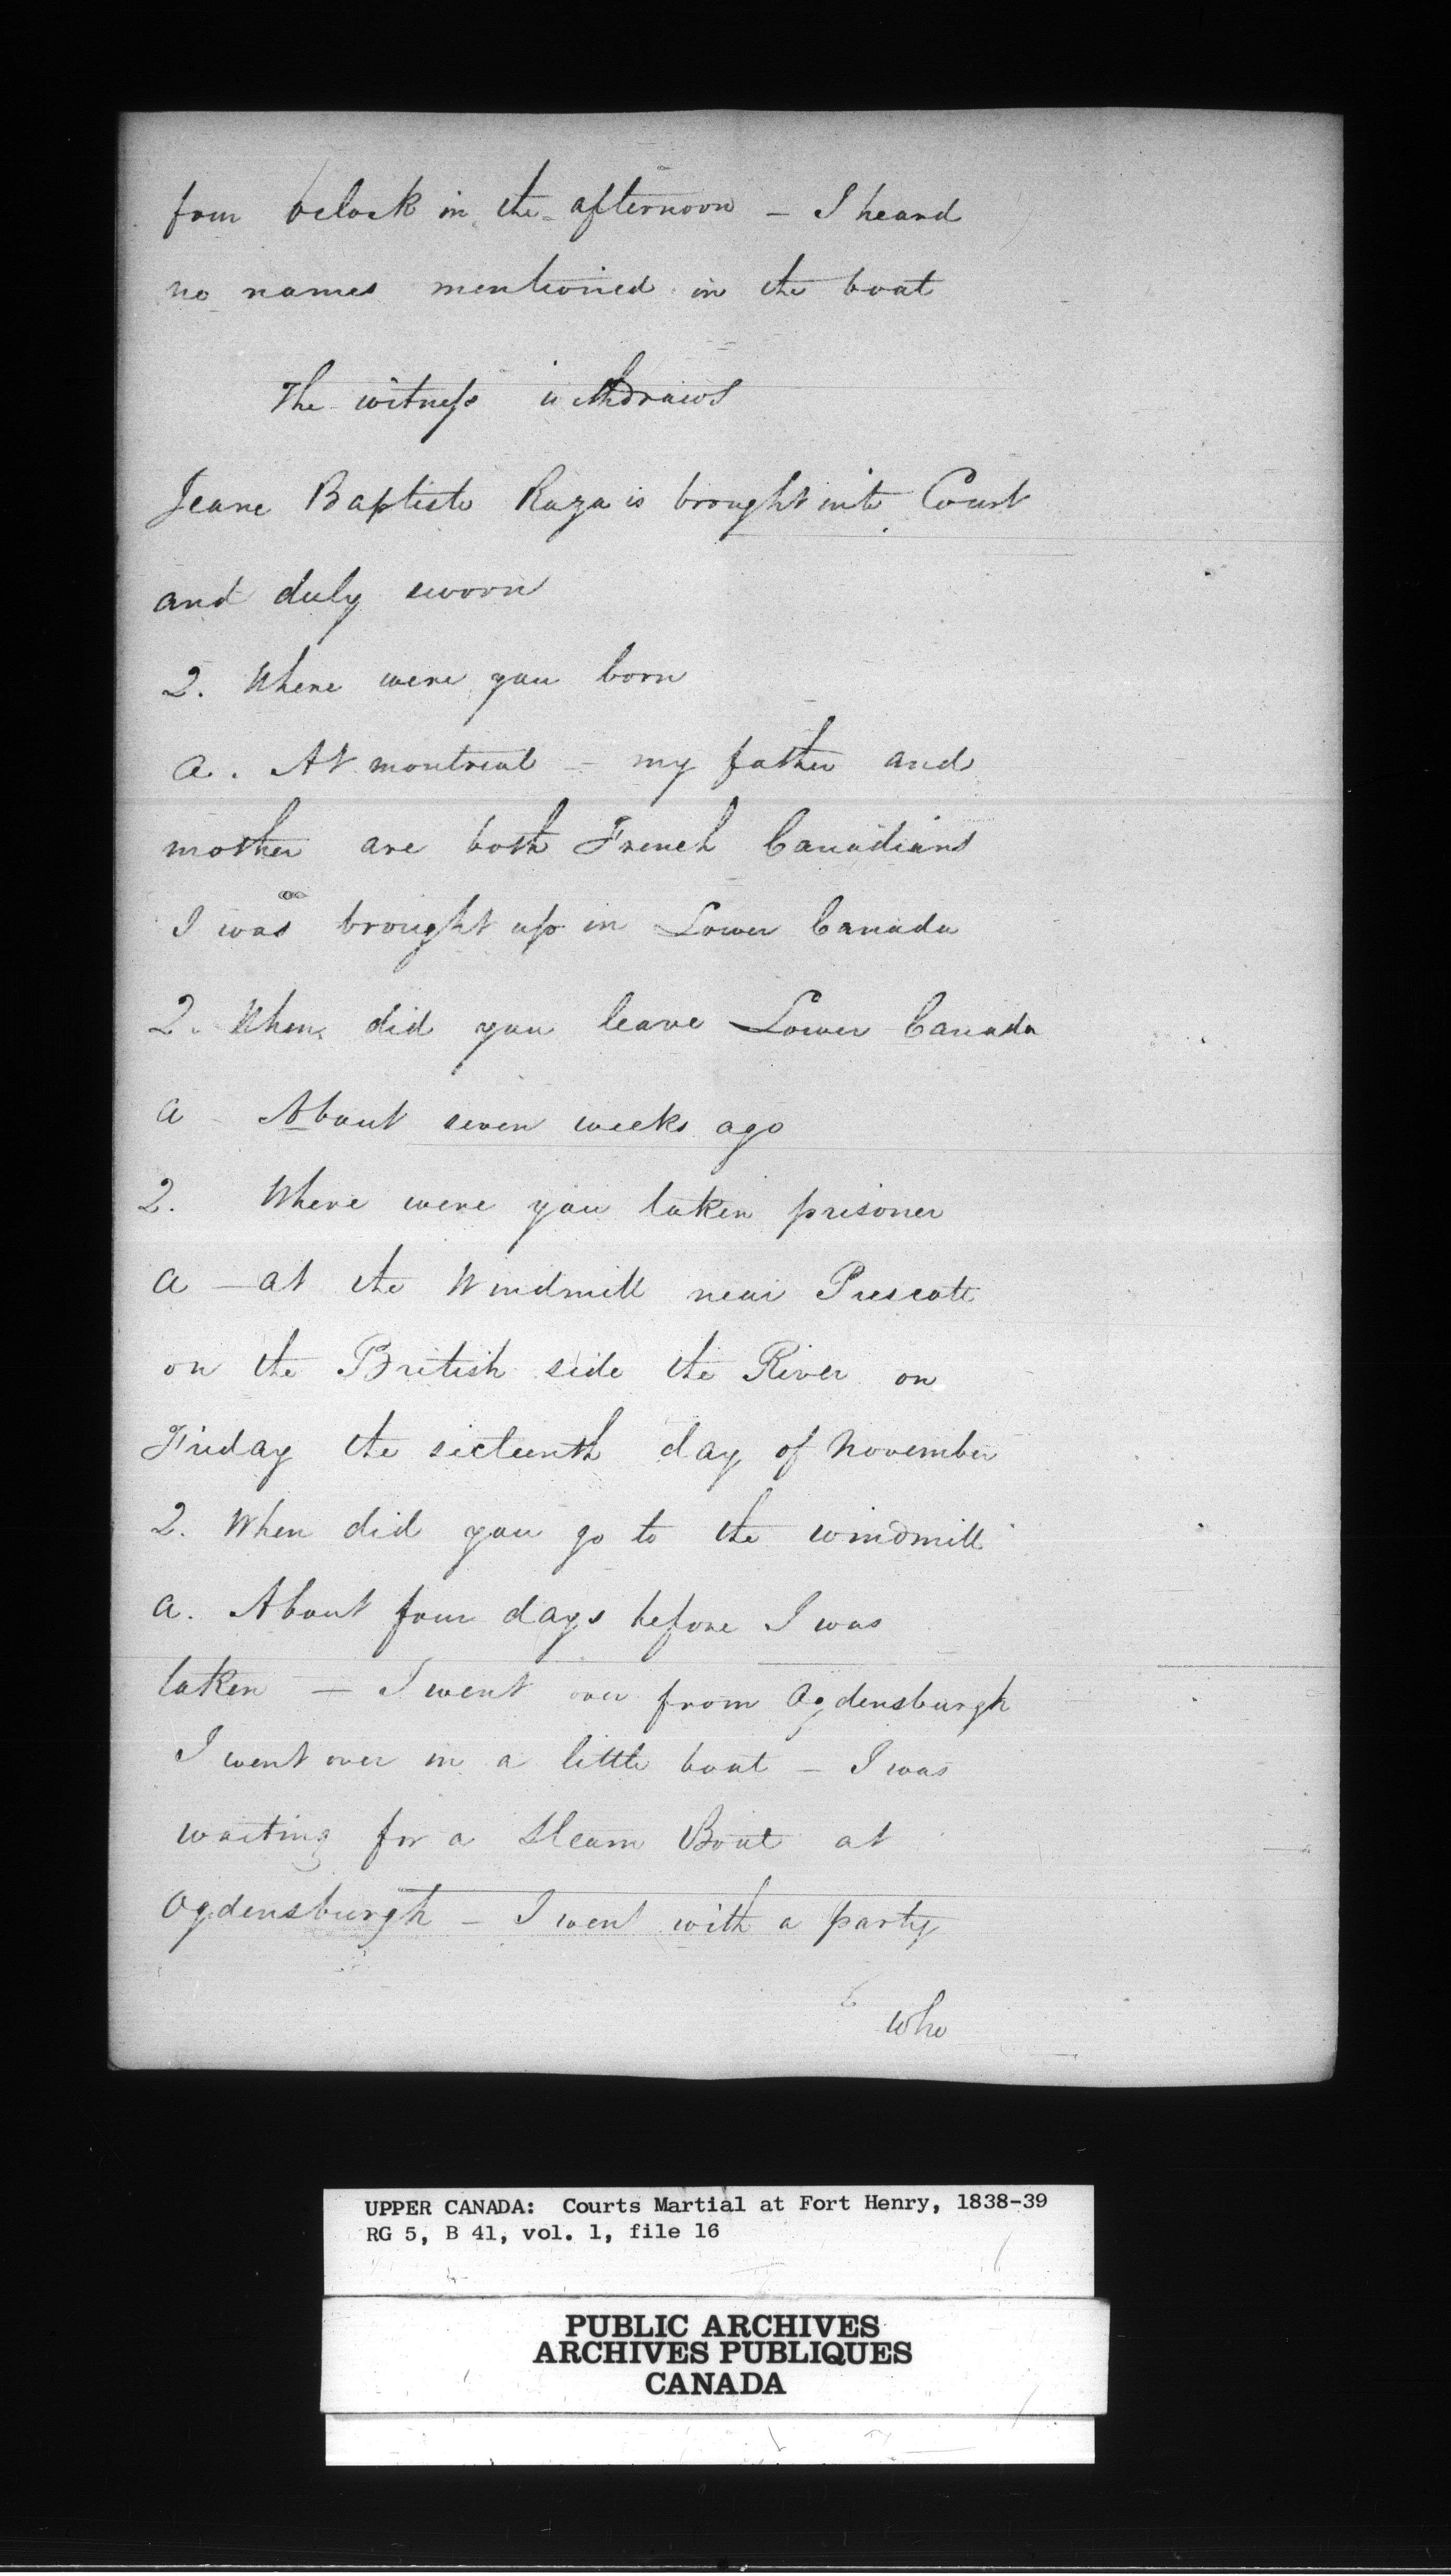 four oclock in the afternoon - I heard
no names mentioned in the boat
The witness withdraws
Jeane Baptiste Raza is brought into Court
and duly sworn
Q. Where were you born
A. At Montreal - my father and
mother are both French Canadians
I was brought up in Lower Canada
Q. When did you leave Lower Canada
A - About seven weeks ago
Q. Where were you taken prisoner
A - at the Windmill near Prescott
on the British side the River on
Friday the sixteenth day of November
Q. When did you go to the windmill
A. About four days before I was
taken - I went over from Ogdensburgh
I went over in a little boat - I was
waiting for a Steam Boat at
Ogdensburgh - I went with a party
who
UPPER CANADA: Courts Martial at Fort Henry, 1838-39
RG 5, B 41, vol. 1, file 16
PUBLIC ARCHIVES
ARCHIVES PUBLIQUES
CANADA